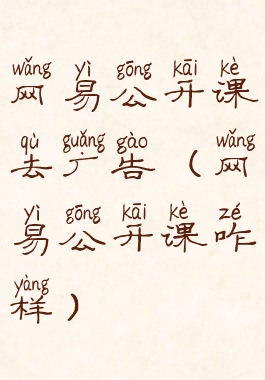 wǎng yì gōng kāi kè
网易公开课
qù guǎng gào wǎng
去广告（网
yì gōng kāi kè zé
易公开课咋
yàng
样）